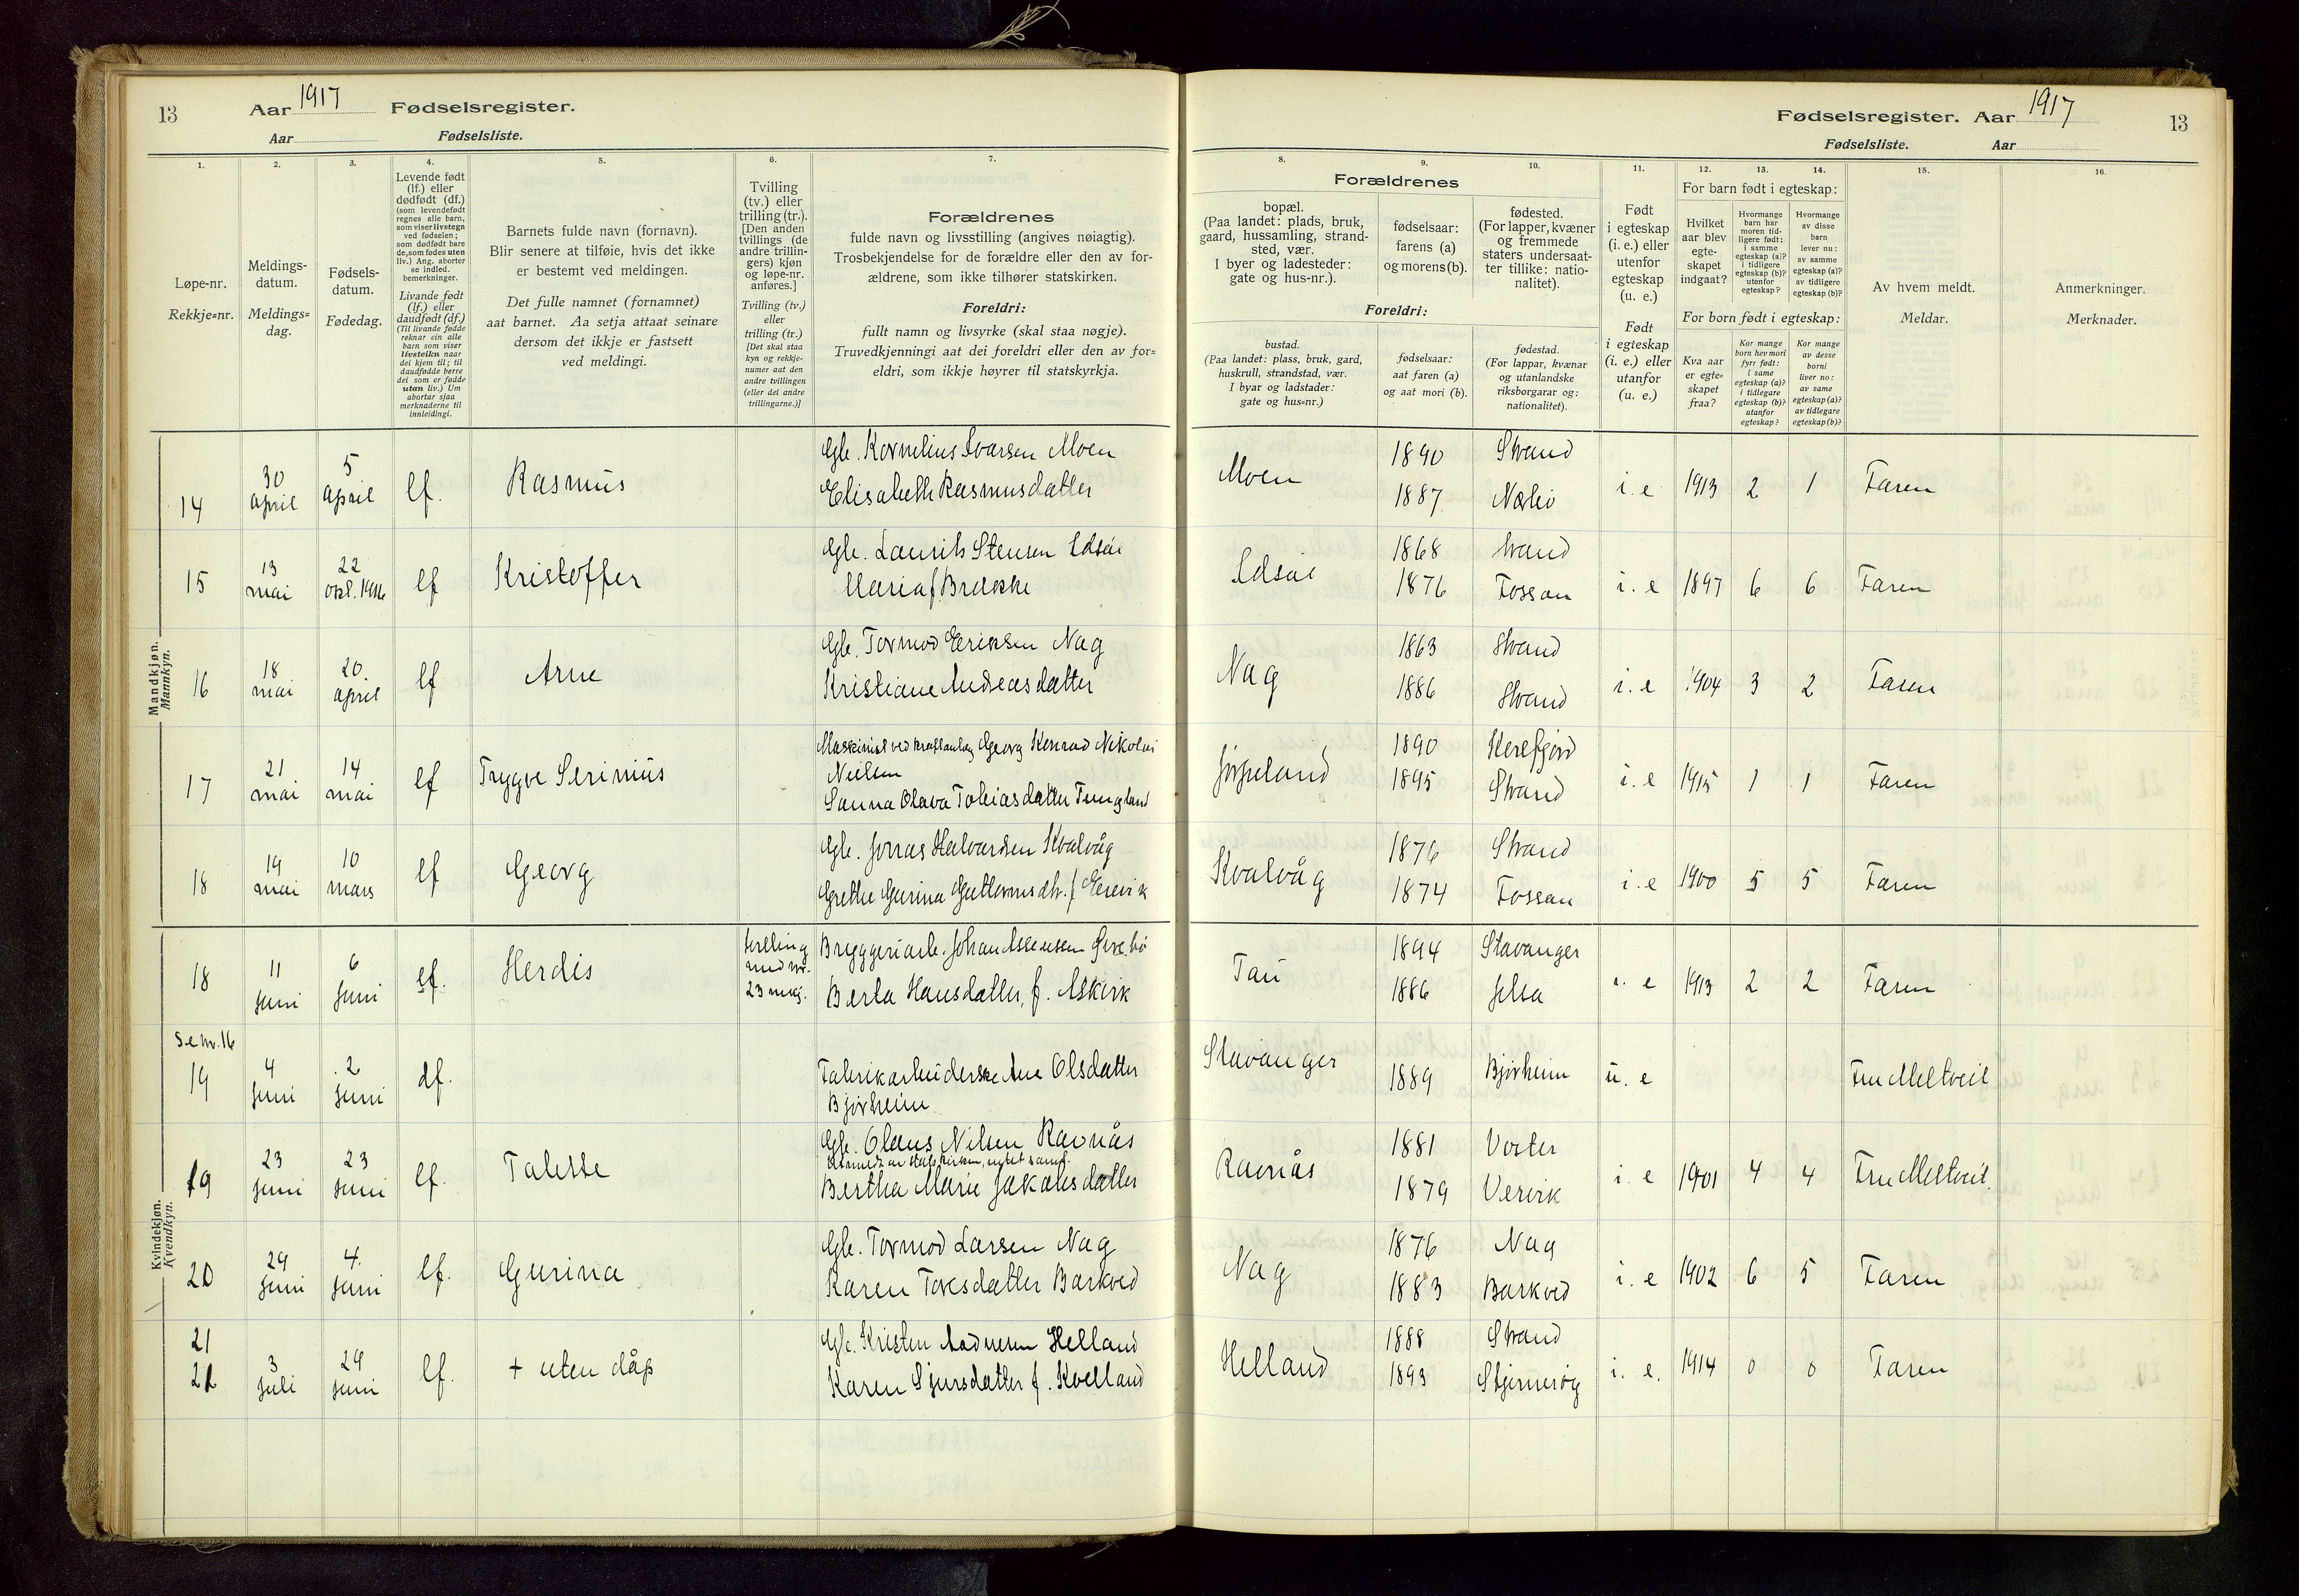 13
Aar 1917 Fødselsregister.
Aar Fødselsliste.
Fødselsregister. Aar 1917
Fødselsliste. Aar
13
1.
Løpe-nr.
Rekkje=nr.
2.
Meldings-
datum.
Meldings=
dag.
3.
Fødsels-
datum.
Fødedag.
4.
Levende født
(lf.) eller
dødfødt (df.)
(som levendefødt
regnes alle barn,
som viser livstegn
ved fødselen;
som dødfødt bare
de, som fødes uten
liv.) Ang. aborter
se indled.
bemerkninger.
Livande født
(lf.) eller
daudfødt (df.)
(Til livande fødde
reknar ein alle
barn som viser
livsteikn naar
dei kjem til; til
daudfødde berre
dei som er fødde
utan liv.) Um
abortar sjaa
merknaderne til
innleidingi.
5.
Barnets fulde navn (fornavn).
Blir senere at tilføie, hvis det ikke
er bestemt ved meldingen.
Det fulle namnet (fornamnet)
aat barnet. Aa setja attaat seinare
dersom det ikkje er fastsett
ved meldingi.
6.
Tvilling
(tv.) eller
trilling (tr.).
[Den anden
tvillings (de
andre trillin-
gers) kjøn
og løpe-nr.
anføres.]
Tvilling (tv.)
eller
trilling (tr.)
[Det skal staa
kyn og rekkje-
numer aat den
andre tvillingen
(eller dei andre
trillingarne.)]
7.
Forældrenes
fulde navn og livsstilling (angives nøiagtig).
Trosbekjendelse for de forældre eller den av for-
ældrene, som ikke tilhører statskirken.
Foreldri:
fullt namn og livsyrke (skal staa nøgje).
Truvedkjenningi aat dei foreldri eller den av for=
eldri, som ikkje høyrer til statskyrkja.
Forældrenes
8.
bopæl.
(Paa landet: plads, bruk,
gaard, hussamling, strand-
sted, vær.
I byer og ladesteder:
gate og hus-nr.).
9.
fødselsaar:
farens (a)
og morens (b).
10.
fødested.
(For lapper, kvæner
og fremmede
staters undersaat-
ter tillike: natio-
nalitet).
Foreldri:
bustad.
(Paa landet: plass, bruk, gard,
huskrull, strandstad, vær.
I byar og ladstader:
gate og hus=nr.)
fødselsaar:
aat faren (a)
og aat mori (b).
fødestad.
(For lappar, kvænar
og utanlandske
riksborgarar og:
nationalitet).
11.
Født
i egteskap
(i. e.) eller
utenfor
egteskap
(u. e.)
Født
i egteskap
(i. e.) eller
utanfor
(u. e.)
For barn født i egteskap:
12.
Hvilket
aar blev
egte-
skapet
indgaat?
13.
Hvormange
barn har
moren tid-
ligere født:
i samme
egteskap (a)?
i tidligere
egteskap (b)?
utenfor
egteskap?
14.
Hvormange
av disse
barn
lever nu:
av samme
egteskap (a)?
av tidligere
egteskap (b)?
For born født i egteskap:
Kva aar
er egte=
skapet
fraa?
Kor mange
born hev mori
fyrr født:
i same
egteskap (a)?
i tidlegare
egteskap (b)?
utanfor
egteskap?
Kor mange
av desse
borni
liver no:
av same
egteskap (a)?
av tidlegare
egteskap (b)?
15.
Av hvem meldt.
Meldar.
16.
Anmerkninger.
Merknader.
Mandkjøn.
Mannkyn.
14 30 april 5 april lf. Rasmus Gbr. Kornelius Ivarsen Moen Moen 1890 Strand i. e 1913 2 1 Faren
Elisabeth Rasmusdatter 1887 Nærbø
15 13 mai 22 okt. 1916 lf Kristoffer Gbr. Laurits Stensen Idsøe Idsøe 1868 Strand i. e 1897 6 6 Faren
Maria f Brække 1876 Fossan
16 18 mai 20. april lf Arne Gbr. Tormod Eriksen Nag Nag 1863 Strand i. e 1904 3 2 Faren
Kristiane Andreasdatter 1886 Strand
17 21 mai 14 mai lf Trygve Serinius Maskinist ved kraftanlæg Georg Konrad Nikolai Jørpeland 1890 i. e 1915 1 1 Faren
Nielsen
Sanna Olava Tobiasdatter Tungland 1895 Strand
18 19 mai 10 mars lf Georg Gbr. Jonas Halvardsen Kvalvåg Kvalvåg 1876 Strand i. e 1900 5 5 Faren
Grethe Gurina Guttormsdtr. f Eiervik 1874 Fossan
Kvindekjøn.
Kvendkyn.
18 11 juni 6 juni lf. Herdis tvilling med nr. 23 mkj. Bryggeriarb. Johan Assensen Tau 1894 Stavanger i. e 1913 2 2 Faren
Berta Hansdatter, f. Askvik 1886 Jelsa
Se nr. 16
19 4 juni 2 juni df. Fabrikarbeiderske Ane Olsdatter Stavanger 1889 Bjørheim u. e Fru Meltveit
Bjørheim
19 23 juni 23 juni lf. Talette Gbr. Olaus Nilsen Ravnås Ravnås 1881 i. e 1901 4 4 Fru Meltveit.
utmeldt av statskirken,
Bertha Marie Jakobsdatter 1879
20 29 juni 4. juni lf. Gurina Gbr. Tormod Larsen Nag Nag 1876 Nag i. e 1902 6 5 Faren
Karen Toresdatter Barkved 1883 Barkved
21
21 3 juli 29 juni lf. + uten dåp Gbr. Kristen Aadnesen Helland Helland 1888 Strand i. e. 1914 0 0 Faren
Karen Sjursdatter f. Kvelland 1893 Stjernerøy